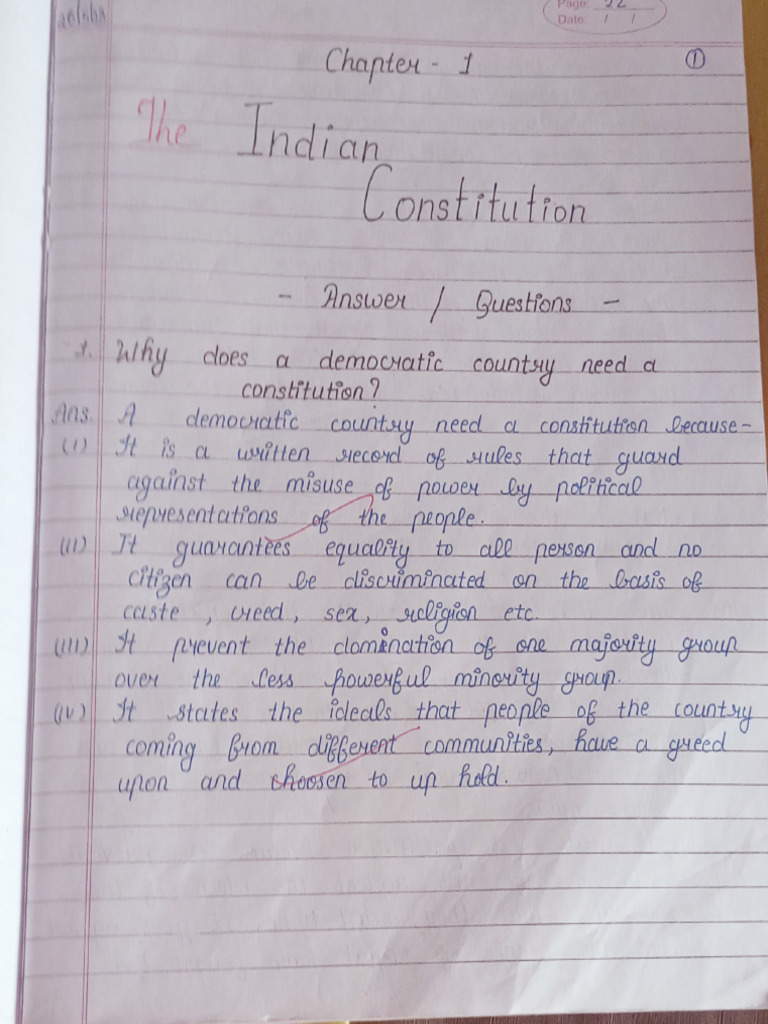 Page: 22
Date: / /
Chapter - 1
①
The Indian
Constitution
- Answer / Questions -
1. Why does a democratic country need a
constitution?
Ans. A democratic country need a constitution because-
(i) It is a written record of rules that guard
against the misuse of power by political
representations of the people.
(ii) It guarantees equality to all person and no
citizen can be discriminated on the basis of
caste, creed, sex, religion etc.
(iii) It prevent the domination of one majority group
over the less powerful minority group.
(iv) It states the ideals that people of the country
coming from different communities, have a greed
upon and choosen to up hold.